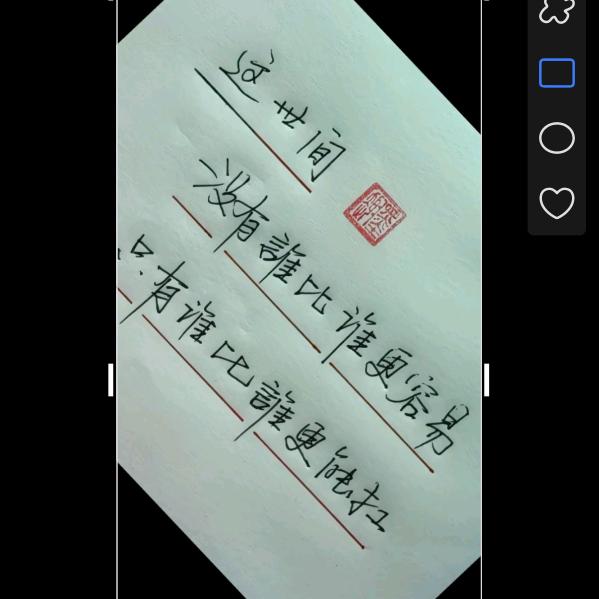 这世间
没有誰比谁更容易
只有谁比誰更能扛